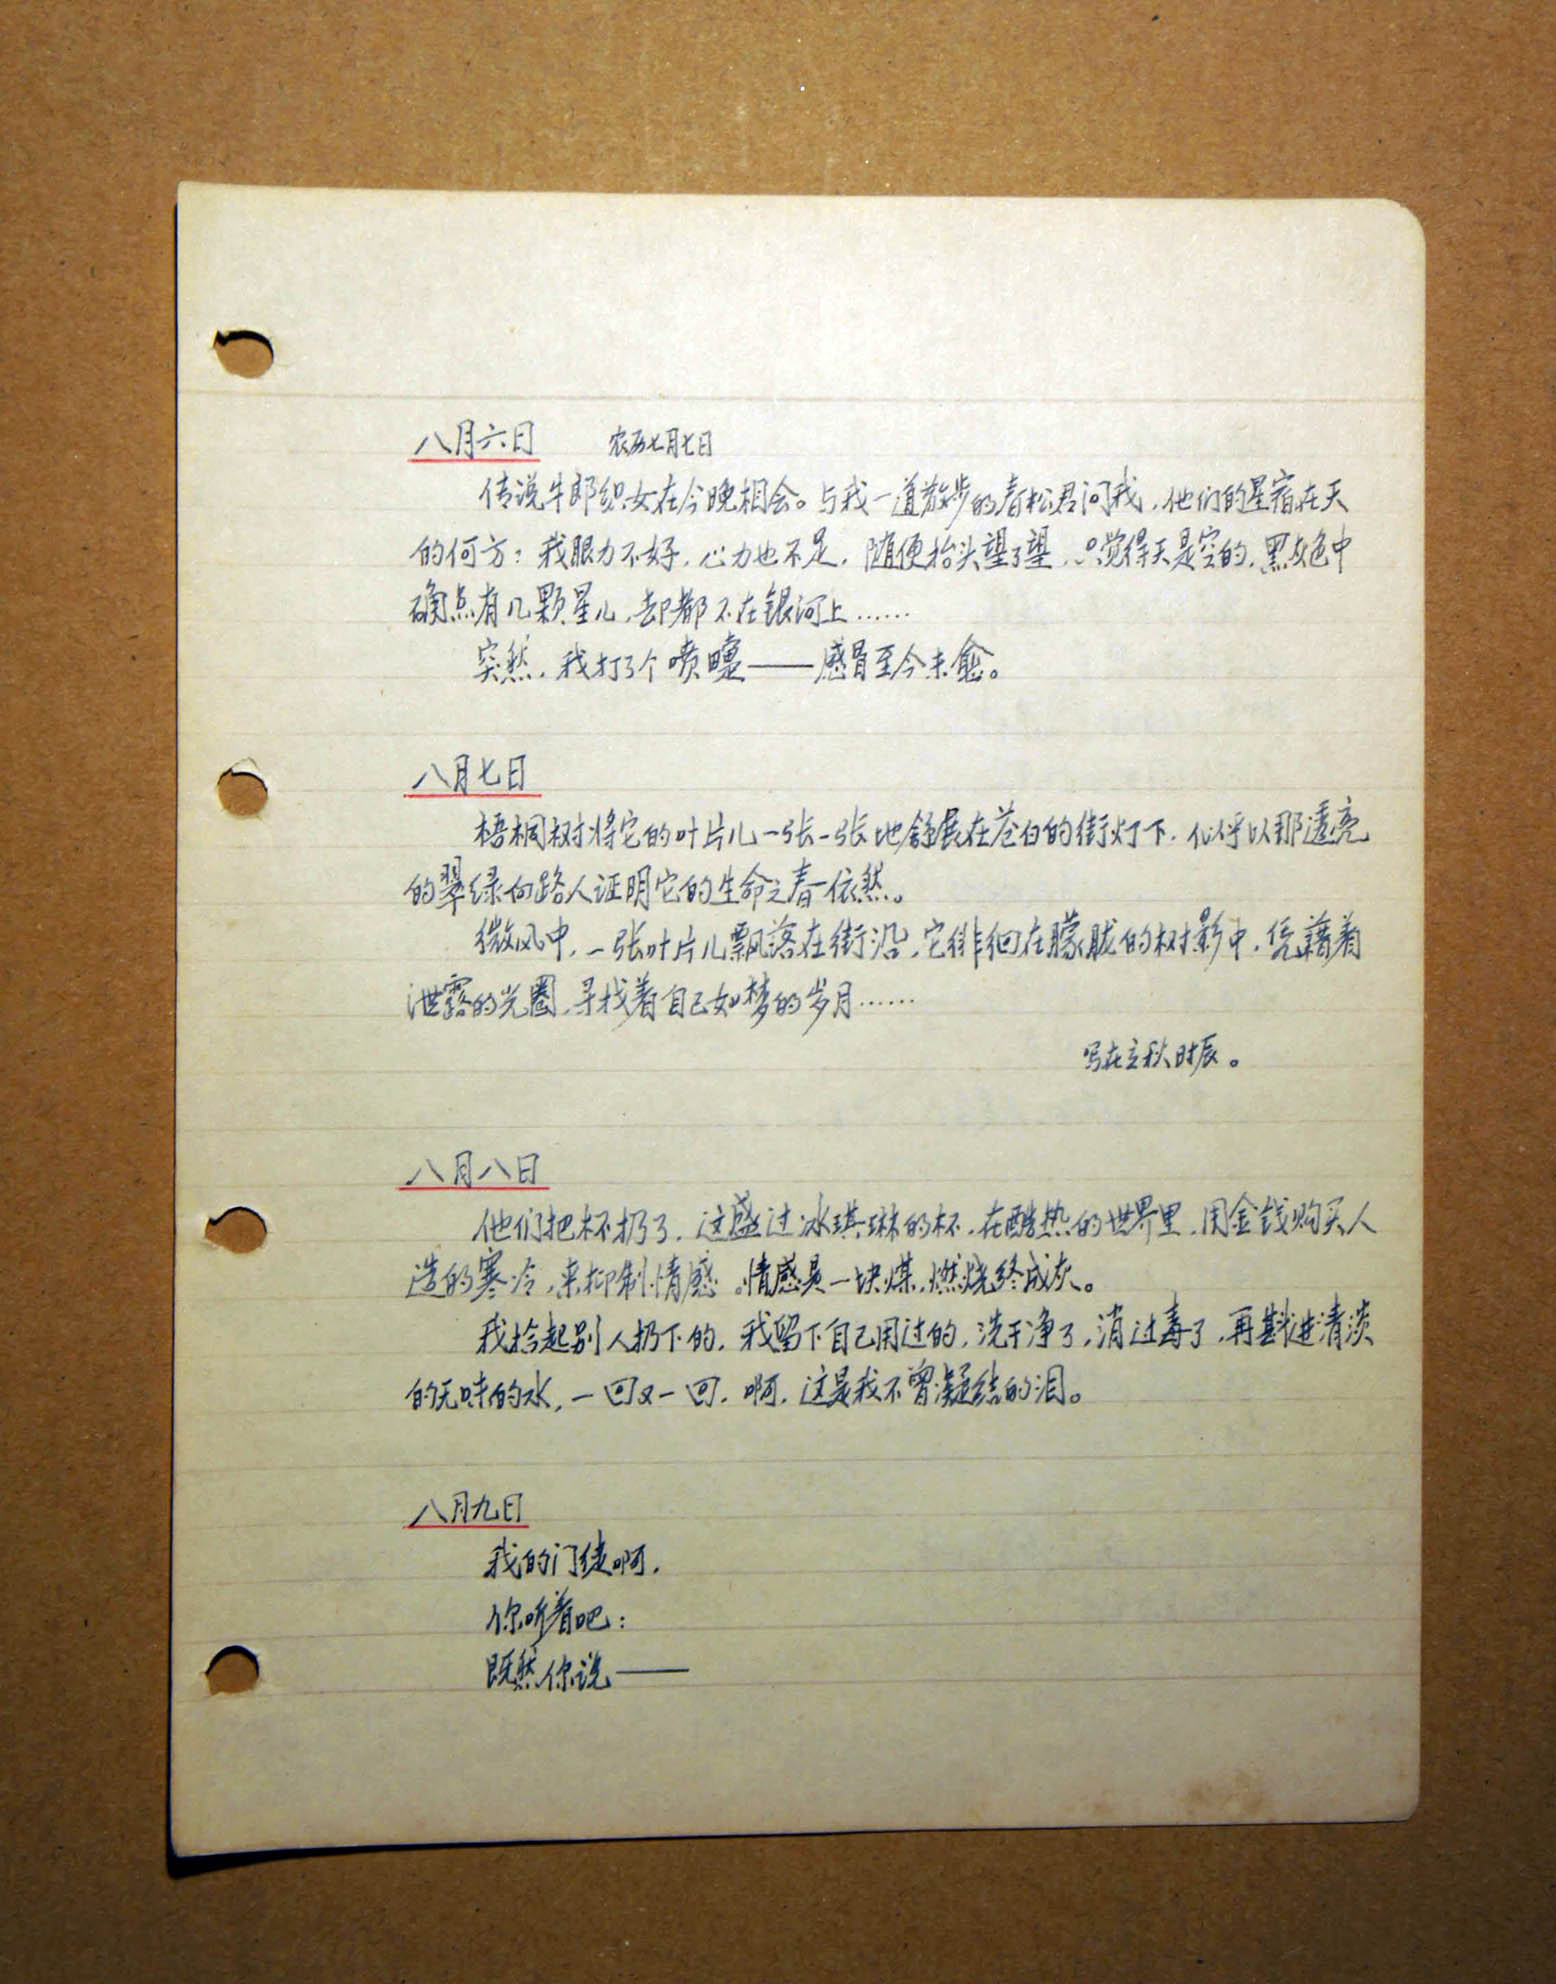 八月六日 农历七月七日
传说牛郎织女在今晚相会。与我一道散步的春松君问我，他们的星宿在天
的何方：我眼力不好，心力也不足，随便抬头望了望，只觉得天是空的，黑色中
确点有几颗星儿，却都不在银河上……
突然，我打了个喷嚏——感冒至今未愈。
八月七日
梧桐树将它的叶片儿一张一张地舒展在苍白的街灯下，似乎以那透亮
的翠绿向路人证明它的生命之春依然。
微风中，一张叶片儿飘落在街沿，它徘徊在朦胧的树影中，凭藉着
泄露的光圈，寻找着自己如梦的岁月……
写在立秋时辰。
八月八日
他们把杯扔了，这盛过冰琪琳的杯，在酷热的世界里，用金钱购买人
造的寒冷，来抑制情感。情感是一块煤，燃烧终成灰。
我拾起别人扔下的，我留下自己用过的，洗干净了，消过毒了，再斟进清淡
的无味的水，一回又一回，啊，这是我不曾凝结的泪。
八月九日
我的门徒啊，
你听着吧：
既然你说——